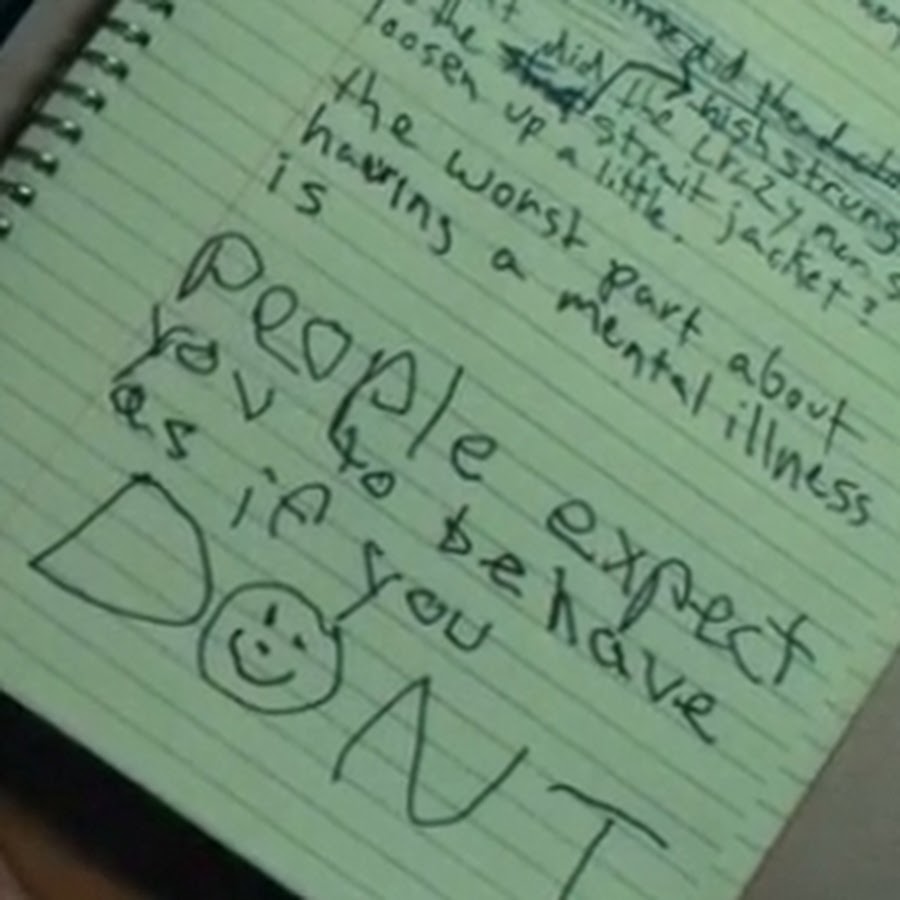 the did the high strung
the crazy man's
strait jacket?
loosen up a little.
the worst part about
having a mental illness
is
people expect
you to behave
as if you
DONT